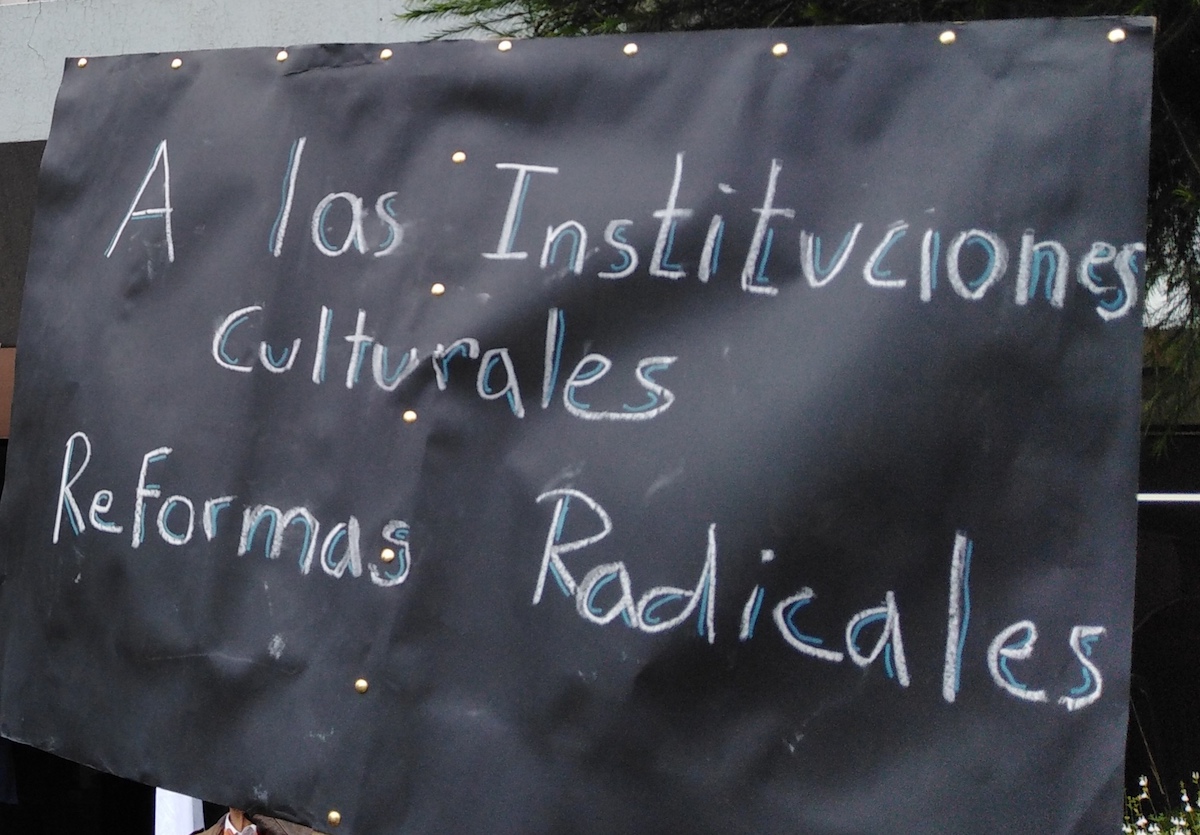 A las Instituciones
Culturales
Reformas Radicales